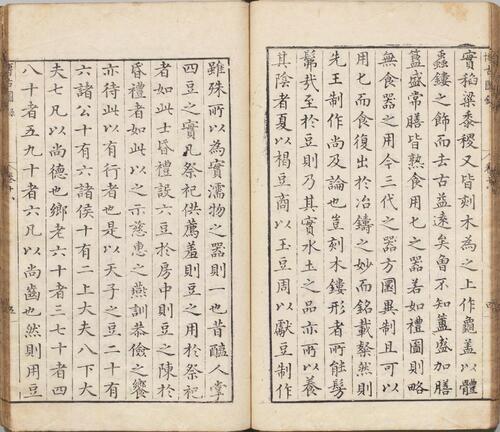 實稻粱黍稷又皆刻木為之上作龜蓋以體
蟲鏤之飾而去古益遠矣曾不知簠盛加膳
簋盛常膳皆熟食用匕之器若如禮圖則略
無食器之用今三代之器方圓異制且可以
用匕而食復出於冶鑄之妙而銘載粲然則
先王制作尚及論也豈刻木鏤形者所能髣
髴哉至於豆則乃其實水土之品亦所以養
其陰者夏以楬豆商以玉豆周以獻豆制作
雖殊所以為實濡物之器則一也昔醢人掌
四豆之實凡祭祀供薦羞則豆之用於祭祀
者如此士昬禮設六豆於房中則豆之陳於
昬禮者如此以之示慈惠之燕訓恭儉之饗
亦待此以有行者也是以天子之豆二十有
六諸公十有六諸侯十有二上大夫八下大
夫七凡以尚德也鄉老六十者三七十者四
八十者五九十者六凡以尚齒也然則用豆